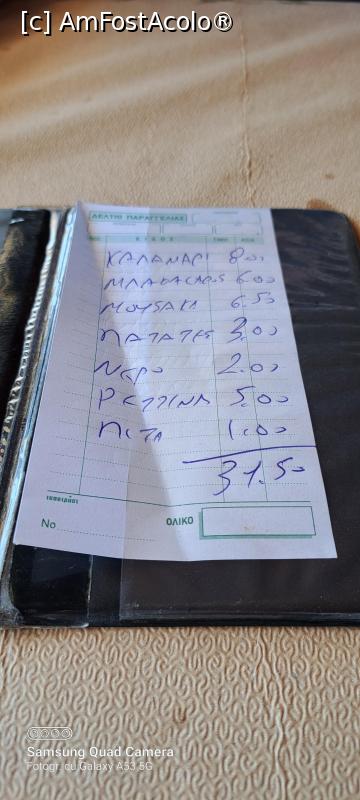 [c] AmFostAcolo®
ΔΕΛΤΙΟ ΠΑΡΑΓΓΕΛΙΑΣ
ΕΙΔΟΣ
ΚΑΛΑΜΑΡΙ 8.00
ΜΠΑΚΑΛΙΑΡΟΣ 6.00
ΜΟΥΣΑΚΑ 6.50
ΠΑΤΑΤΕΣ 3.00
ΝΕΡΟ 2.00
ΡΕΤΣΙΝΑ 5.00
ΠΙΤΑ 1.00
31.50
No
ΟΛΙΚΟ
Samsung Quad Camera
Fotogr. cu Galaxy A53 5G